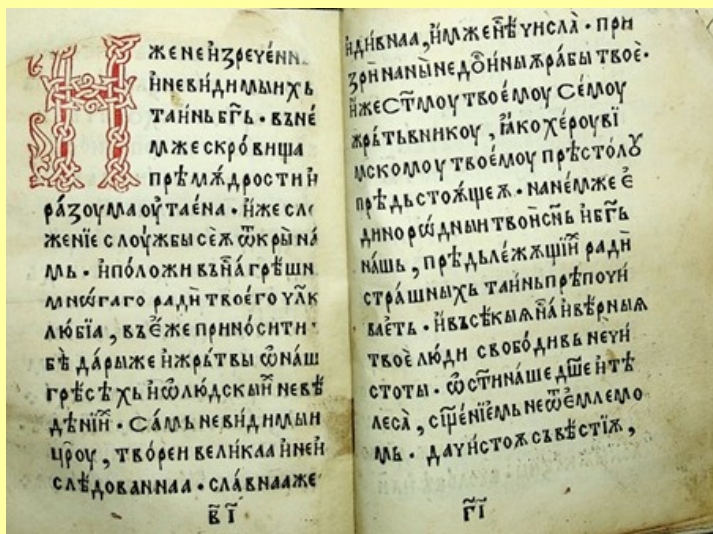 И
же неизреченн
и невидимыихь
таинь б҃гь · въне́
мже скро́вища
прѣмѫдрости и
ра́зоума оу҆таена · и҆же сло
женїе слоу́жбы сеѫ ѿкры́на́
мь · и҆положи въна́ грѣшн
мнѡгаго ради твоего чл҃к
любїа , въе́же приносити ·
бѣ да́ры же и҆жрьтвы ѡ҆наш
грѣсѣхь и҆ѡ҆людскыи҆ невѣ
дѣнїи · са́мь невидимыи
цр҃оу , твореи великаа и҆неи
слѣдованнаа · сла́внаа же
в҃і
и҆ди́внаа , и҆мже нѣ́ числа̀ · при
зри на ны̀ недо́и҆ны́ѫ рабы̀ твоѐ ·
и҆же ст҃моу твоемоу семоу
жрьтьвникоу , ꙗ҆ко хе́роуви
мскомоу твоемоу прѣсто́лоу
прѣдьстоѫщеѫ · на не́мже е҆
динорѡ́дныи твои сн҃ь и҆б҃гь
на́шь , прѣдьлежѫщїи҆ ради
стра́шныхь таинь прѣпочи
ваеть · и҆въсѣкыѫ на́ и҆вѣ́рныѫ
твоѐ лю́ди свобо́дивь нечи
стоты · ѡ҆ст҃и на́ше дш҃е и҆тѣ
леса̀ , сщ҃е́нїемь неѿе́млемо
мь · да чистоѫ съвѣстїѫ ,
г҃і